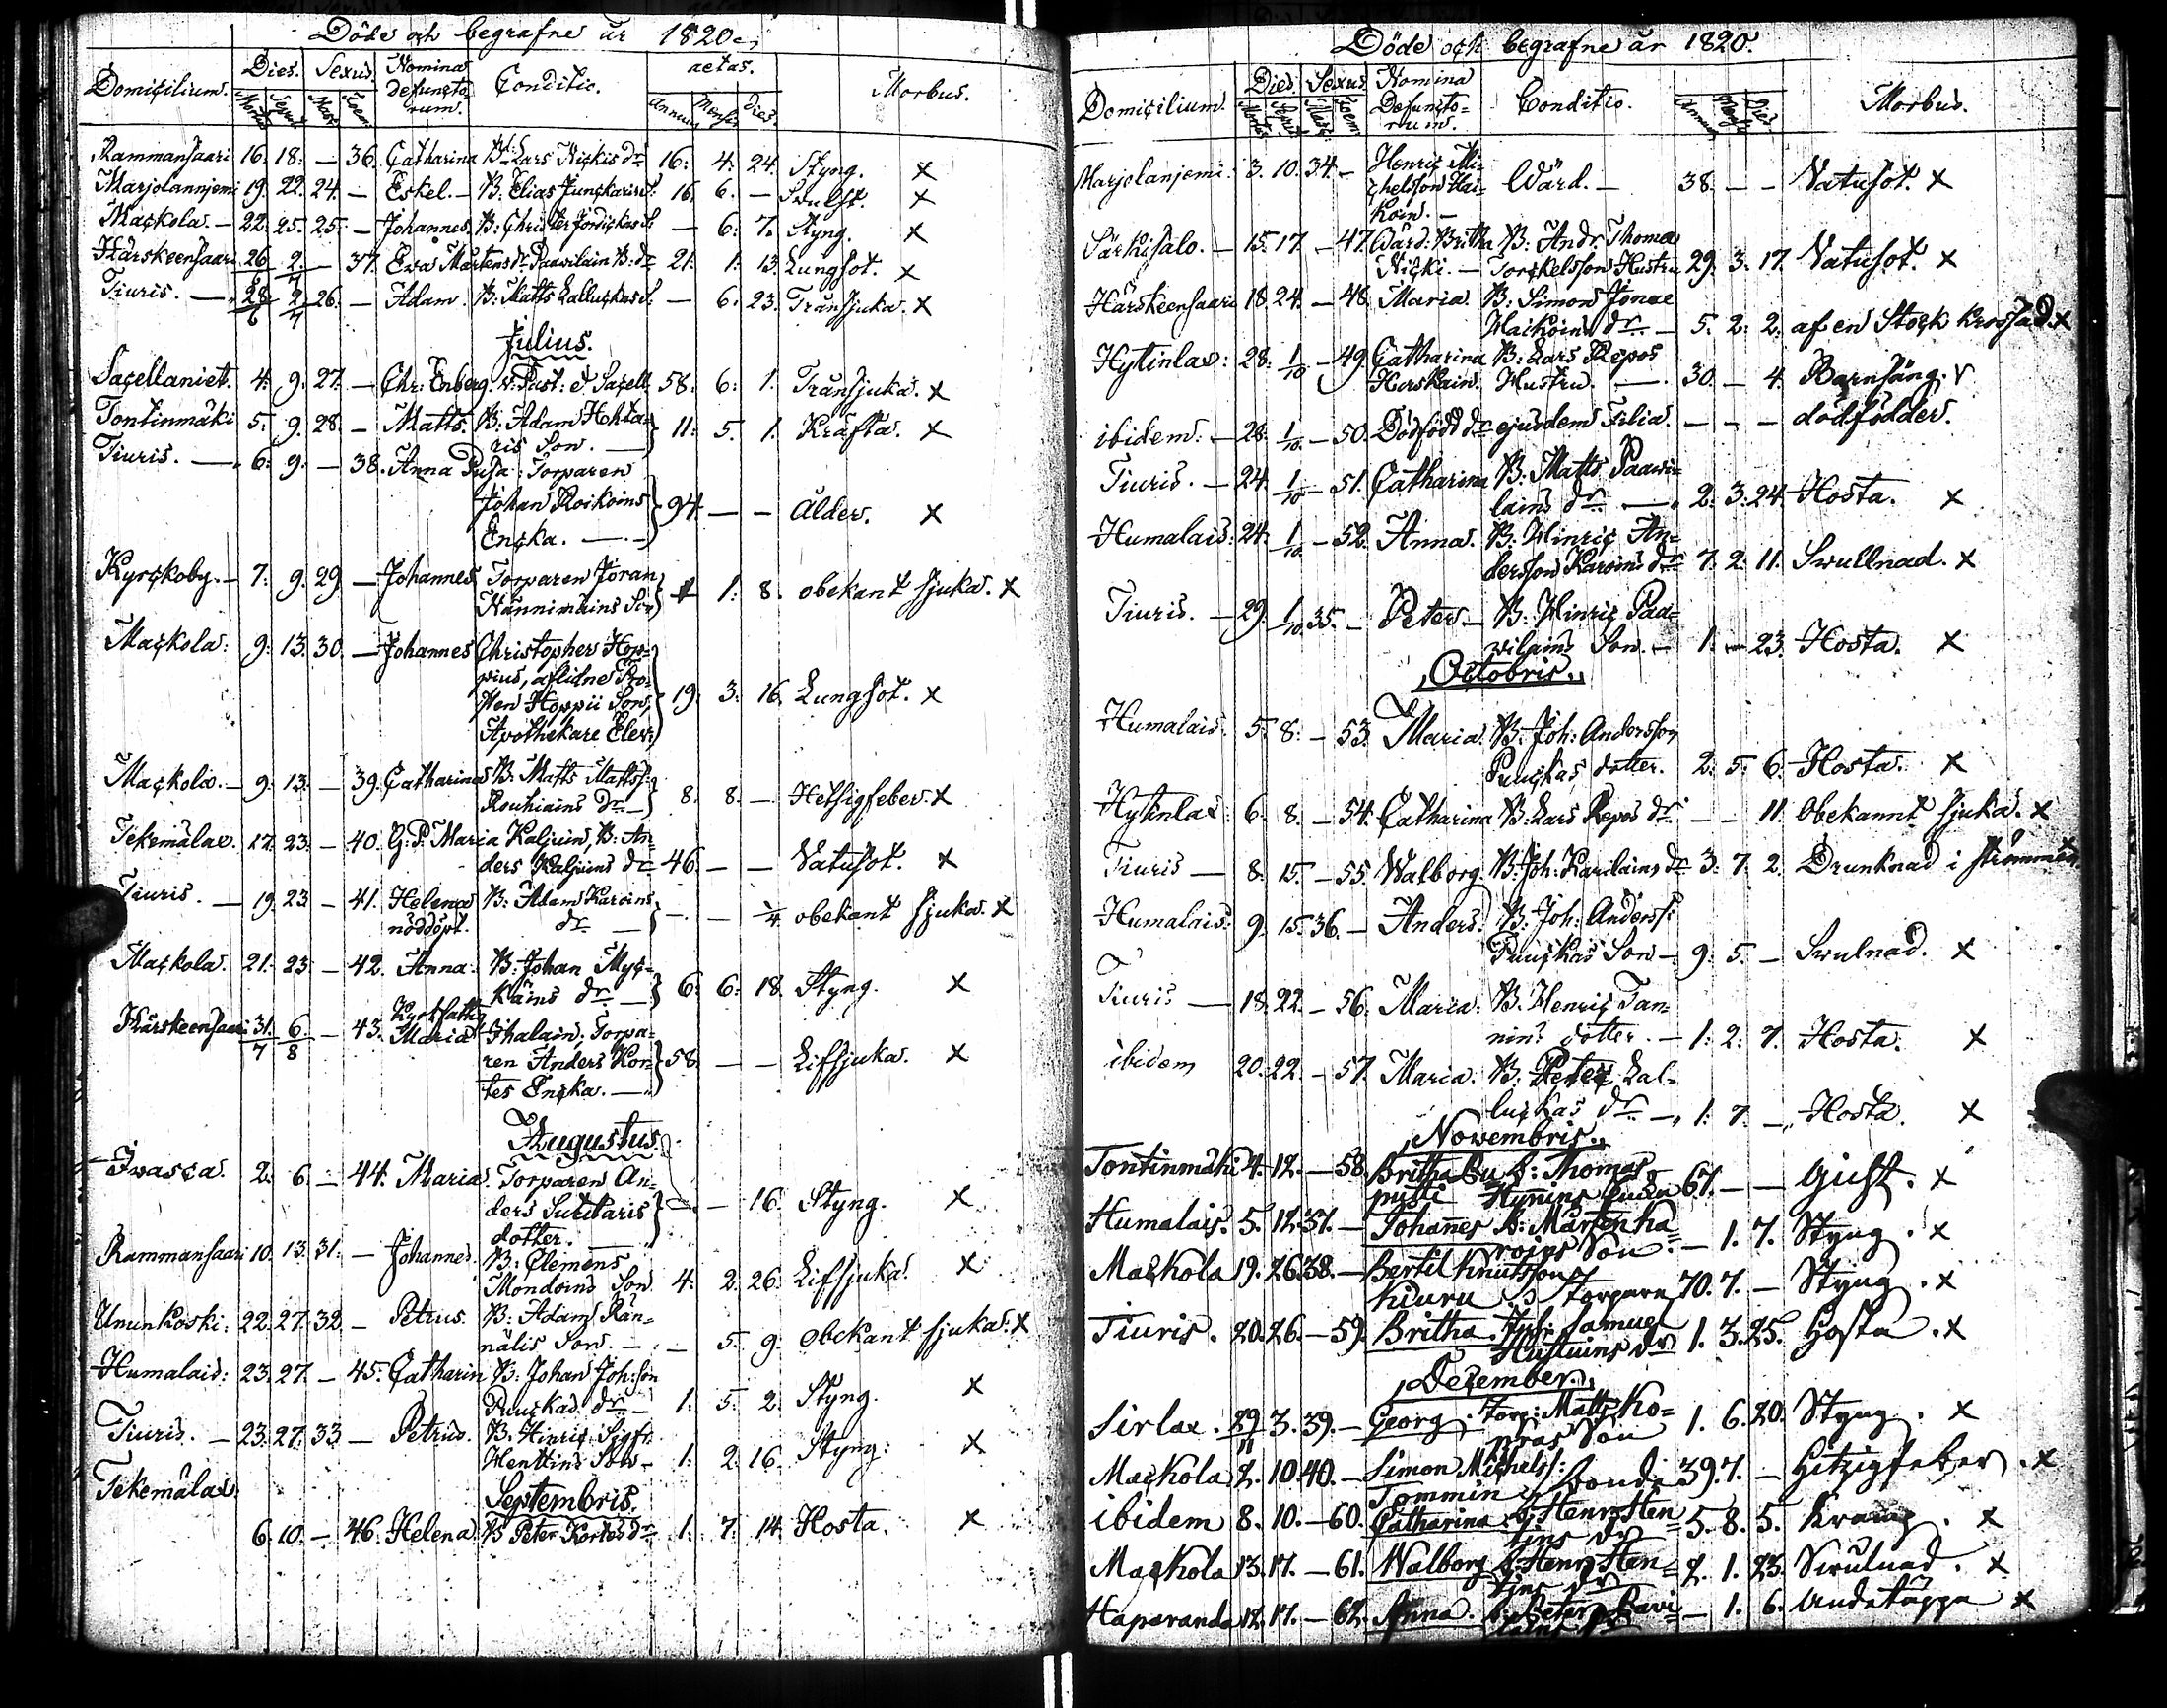 Döde och begrafne år 1820.
Domicilium. Dies. Sexus. Nomina defuncto-rum. Conditio. aetas. Morbus.
Mortus Sepul Masc Foem. Annum Mensis Dies.
Rammansaari 16. 18. — 36. Catharina B: Lars Nickis dr 16. 4. 24. Styng. X
Marjolanniemi 19. 22. 24. — Eskel. — B. Elias Junckaris S. 16. 6. — Swulst. X
Mackola. — 22. 25. 25. — Johannes. B: Christer S. — 6. 7. Styng. X
Kärskeensaari 26/6 2/7 — 37. Eva Mårtens dr Paawilain B: dr 21. 1. 13. Lungsot. X
Tiuris. — 28/6 2/7 26. — Adam. B: Matts Lalluckas S. — 6. 23. Trånsjuka. X
Julius.
Sacellaniet. 4. 9. 27. — Chr: Enberg. v: Past: et Sacell. 58. 6. 1. Trånsjuka. X
Tontinmäki 5. 9. 28. — Matts. B: Adam Hohta-
ris Son. — 11. 5. 1. Kräfta. X
Tiuris. — 6. 9. — 38. Anna Pusa: Torparen
Johan Roikoins
Encka. — 94. — — Ålder. X
Kyrckoby. — 7. 9. 29. — Johannes Torparen Jöran
Hännimäins Son 1. 8. obekant sjuka. X
Mackola: 9. 13. 30. — Johannes Christopher Hop-
pius, aflidne Pro-
sten Hoppii Son, 19. 3. 16. Lungsot. X
Apothekare Elev.
Mackola. — 9. 13. — 39. Catharina B: Matts Mattss:
Rouhiains Dr — 8. 8. — Hetsigfeber. X
Tekemälax. 17. 23. — 40. G: P. Maria Kaljuin, B: An-
ders Kaljuins dr 46. — — Vatusot. X
Tiuris. — 19. 23 — 41. Helena B: Adam Karoins
nöddöpt. dr — — — 1/4 obekant sjuka. X
Mackola. 21. 23 — 42. Anna: B: Johan Myc-
käins dr — 6. 6. 18. Styng. X
Kärskeensaari 31/7 6/8 — 43. Maria Ihalain, Torpa-
ren Anders Kon-
tes Encka. — 58. — — Lifsjuka. X
Augustus.
Iwasca. 2. 6. — 44. Maria. Torparen An-
ders Sutilaris
dotter. — — 16. Styng. X
Rammansaari 10. 13. 31. — Johannes. B: Clemens
Mondoins Son 4. 2. 26. Lifsjuka. X
Ununkoski: 22. 27. 32. — Petrus. B: Adam Rän-
nälis Son. — — 5. 9. Obekant sjuka. X
Humalais: 23. 27. — 45. Catharin B: Johan Joh:son
Puuckas dr — 1. 5. 2. Styng. X
Tiuris. — 23. 27. 33 — Petrus. B: Hinric Sigfr:
Henttins Son — 1. 2. 16. Styng: X
Tekemälax.
Septembris.
6. 10. — 46. Helena. B Peter Kortes dr 1. 7. 14. Hosta. X
Döde och begrafne år 1820.
Domicilium. Dies Sexus Nomina Defuncto-rum. Conditio. Morbus.
Mortus Sepul Masc Foem. Annum Mensis Dies
Marjolanjemi: 3. 10. 34. — Henric Mi-
chelsson Hai-
koin. — Wärd. — 38. — — Vatusot. X
Särkisalo. — 15. 17. — 47. Wärd: Britha B: Andr. Thomæ
Nicki. — Torckelsson Hustru 29. 3. 17. Vatusot. X
Härskeensaari 18. 24. — 48. Maria. B: Simon Jonæ
Haikoins dr. — 5. 2. 2. af en Stock krossad. X
Hytinlax: 28. 1/10 — 49. Catharina B: Lars Repos
Hurskain. Hustru. — 30. — 4. Barnsäng.
ibidem. — 28. 1/10 — 50. Dödfödd dr ejusdem Filia. — — — dödfödder.
Tiuris. — 24. 1/10 — 51. Catharina B: Matts Paawi-
lains dr. — 2. 3. 24. Hosta. X
Humalais: 24. 1/10 — 52. Anna. B: Hinric An-
dersson Karoins dr 7. 2. 11. Swullnad. X
Tiuris. — 29. 1/10 35. — Peter — B: Hinric Paa-
wilains Son. — 1. — 23. Hosta. X
Octobris.
Humalais. 5. 8. — 53. Maria. B: Joh: Andersson
Puuckas, dotter. 2. 5. 6. Hosta. X
Hytinlax: 6. 8. — 54. Catharina B: Lars Repos dr. — — 11. Obekannt sjuka. X
Tiuris — 8. 15. — 55. Walborg. B: Joh: Karilains dr 3. 7. 2. Drunknad i strömmen.
Humalais: 9. 15. 36. — Anders. B: Joh: Anderss:
Puuckas Son — 9. 5. — Swulnad. X
Tiuris — 18. 22. — 56. Maria: B. Henric Tan-
nin: dotter. — 1. 2. 7. Hosta. X
ibidem 20. 22. — 57. Maria. B: Peter Lal-
luckas dr. — 1. 7. — Hosta. X
Novembris.
Tontinmäki 4. 12. — 58. Britha B: Thomas
67. — — Gicht. X
Humalais. 5. 12. 37. — Johannes B: Mårten Ka-
roins Son. — 1. 7. Styng. X
Mackola 19. 26. 38. — Bertil Knutsson
Kiuru Torpare 70. 7. — Styng. X
Tiuris. 20. 26. — 59. Britha. Samuel
dr 1. 3. 25. Hosta. X
December.
Sirlax. 29/11 3. 39. — Georg. Torp: Matts Ko-
pras Son 1. 6. 20. Styng. X
Mackola 2. 10. 40. — Simon Michelss:
Tommin Bonde 39. 7. — Hetzigfeber. X
ibidem 8. 10. — 60. Catharina. B: Henr: Hen-
tins dr 5. 8. 5. X
Mackola 13. 17. — 61. Walborg B: Henr: Hen-
tins dr 2. 1. 23. Swulnad. X
Haparanda 12. 17. — 62. Anna. B: Peter Pavi-
lains — 1. 6. Andetäppa X